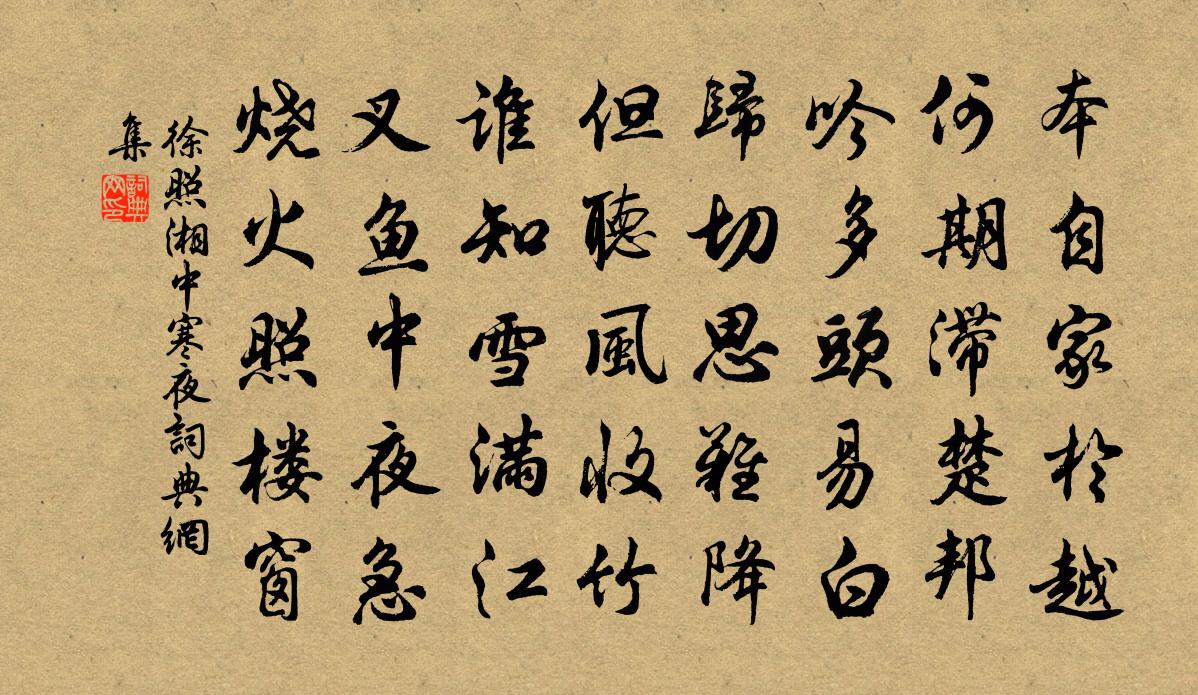 本自家於越
何期滞楚邦
吟多頭易白
歸切思難降
但聽風收竹
谁知雪满江
叉鱼中夜急
烧火照楼窗
徐照湘中寒夜詞典網
集
詞典
网印